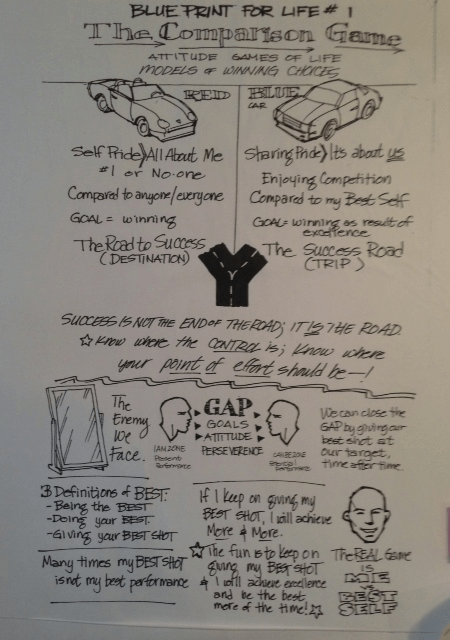 BLUE PRINT FOR LIFE # 1
The Comparison Game
ATTITUDE GAMES OF LIFE
MODELS OF WINNING CHOICES
RED
Self Pride > All About Me
#1 or No-one
Compared to anyone/everyone
GOAL = winning
The Road to Success
(DESTINATION)
BLUE
CAR
Sharing Pride > It's about us
Enjoying Competition
Compared to my Best Self
GOAL = winning as result of
excellence
The Success Road
(TRIP)
SUCCESS IS NOT THE END OF THE ROAD; IT IS THE ROAD.
☆ Know where the CONTROL is; Know where
your point of effort should be—!
The
Enemy
We
Face.
GAP
GOALS
ATTITUDE
PERSEVERENCE
I AM ZONE
Present
Performance
CAN BE ZONE
Potential
Performance
We can close the
GAP by giving our
best shot at
our target,
time after time.
3 Definitions of BEST:
- Being the BEST
- Doing your BEST.
- Giving your BEST SHOT
Many times my BEST SHOT
is not my best performance
If I keep on giving my
BEST SHOT, I will achieve
More & More.
☆ The fun is to keep on
giving my BEST SHOT
& I will achieve excellence
and be the best
more of the time! ☆
The REAL Game
IS
ME
BEST
SELF